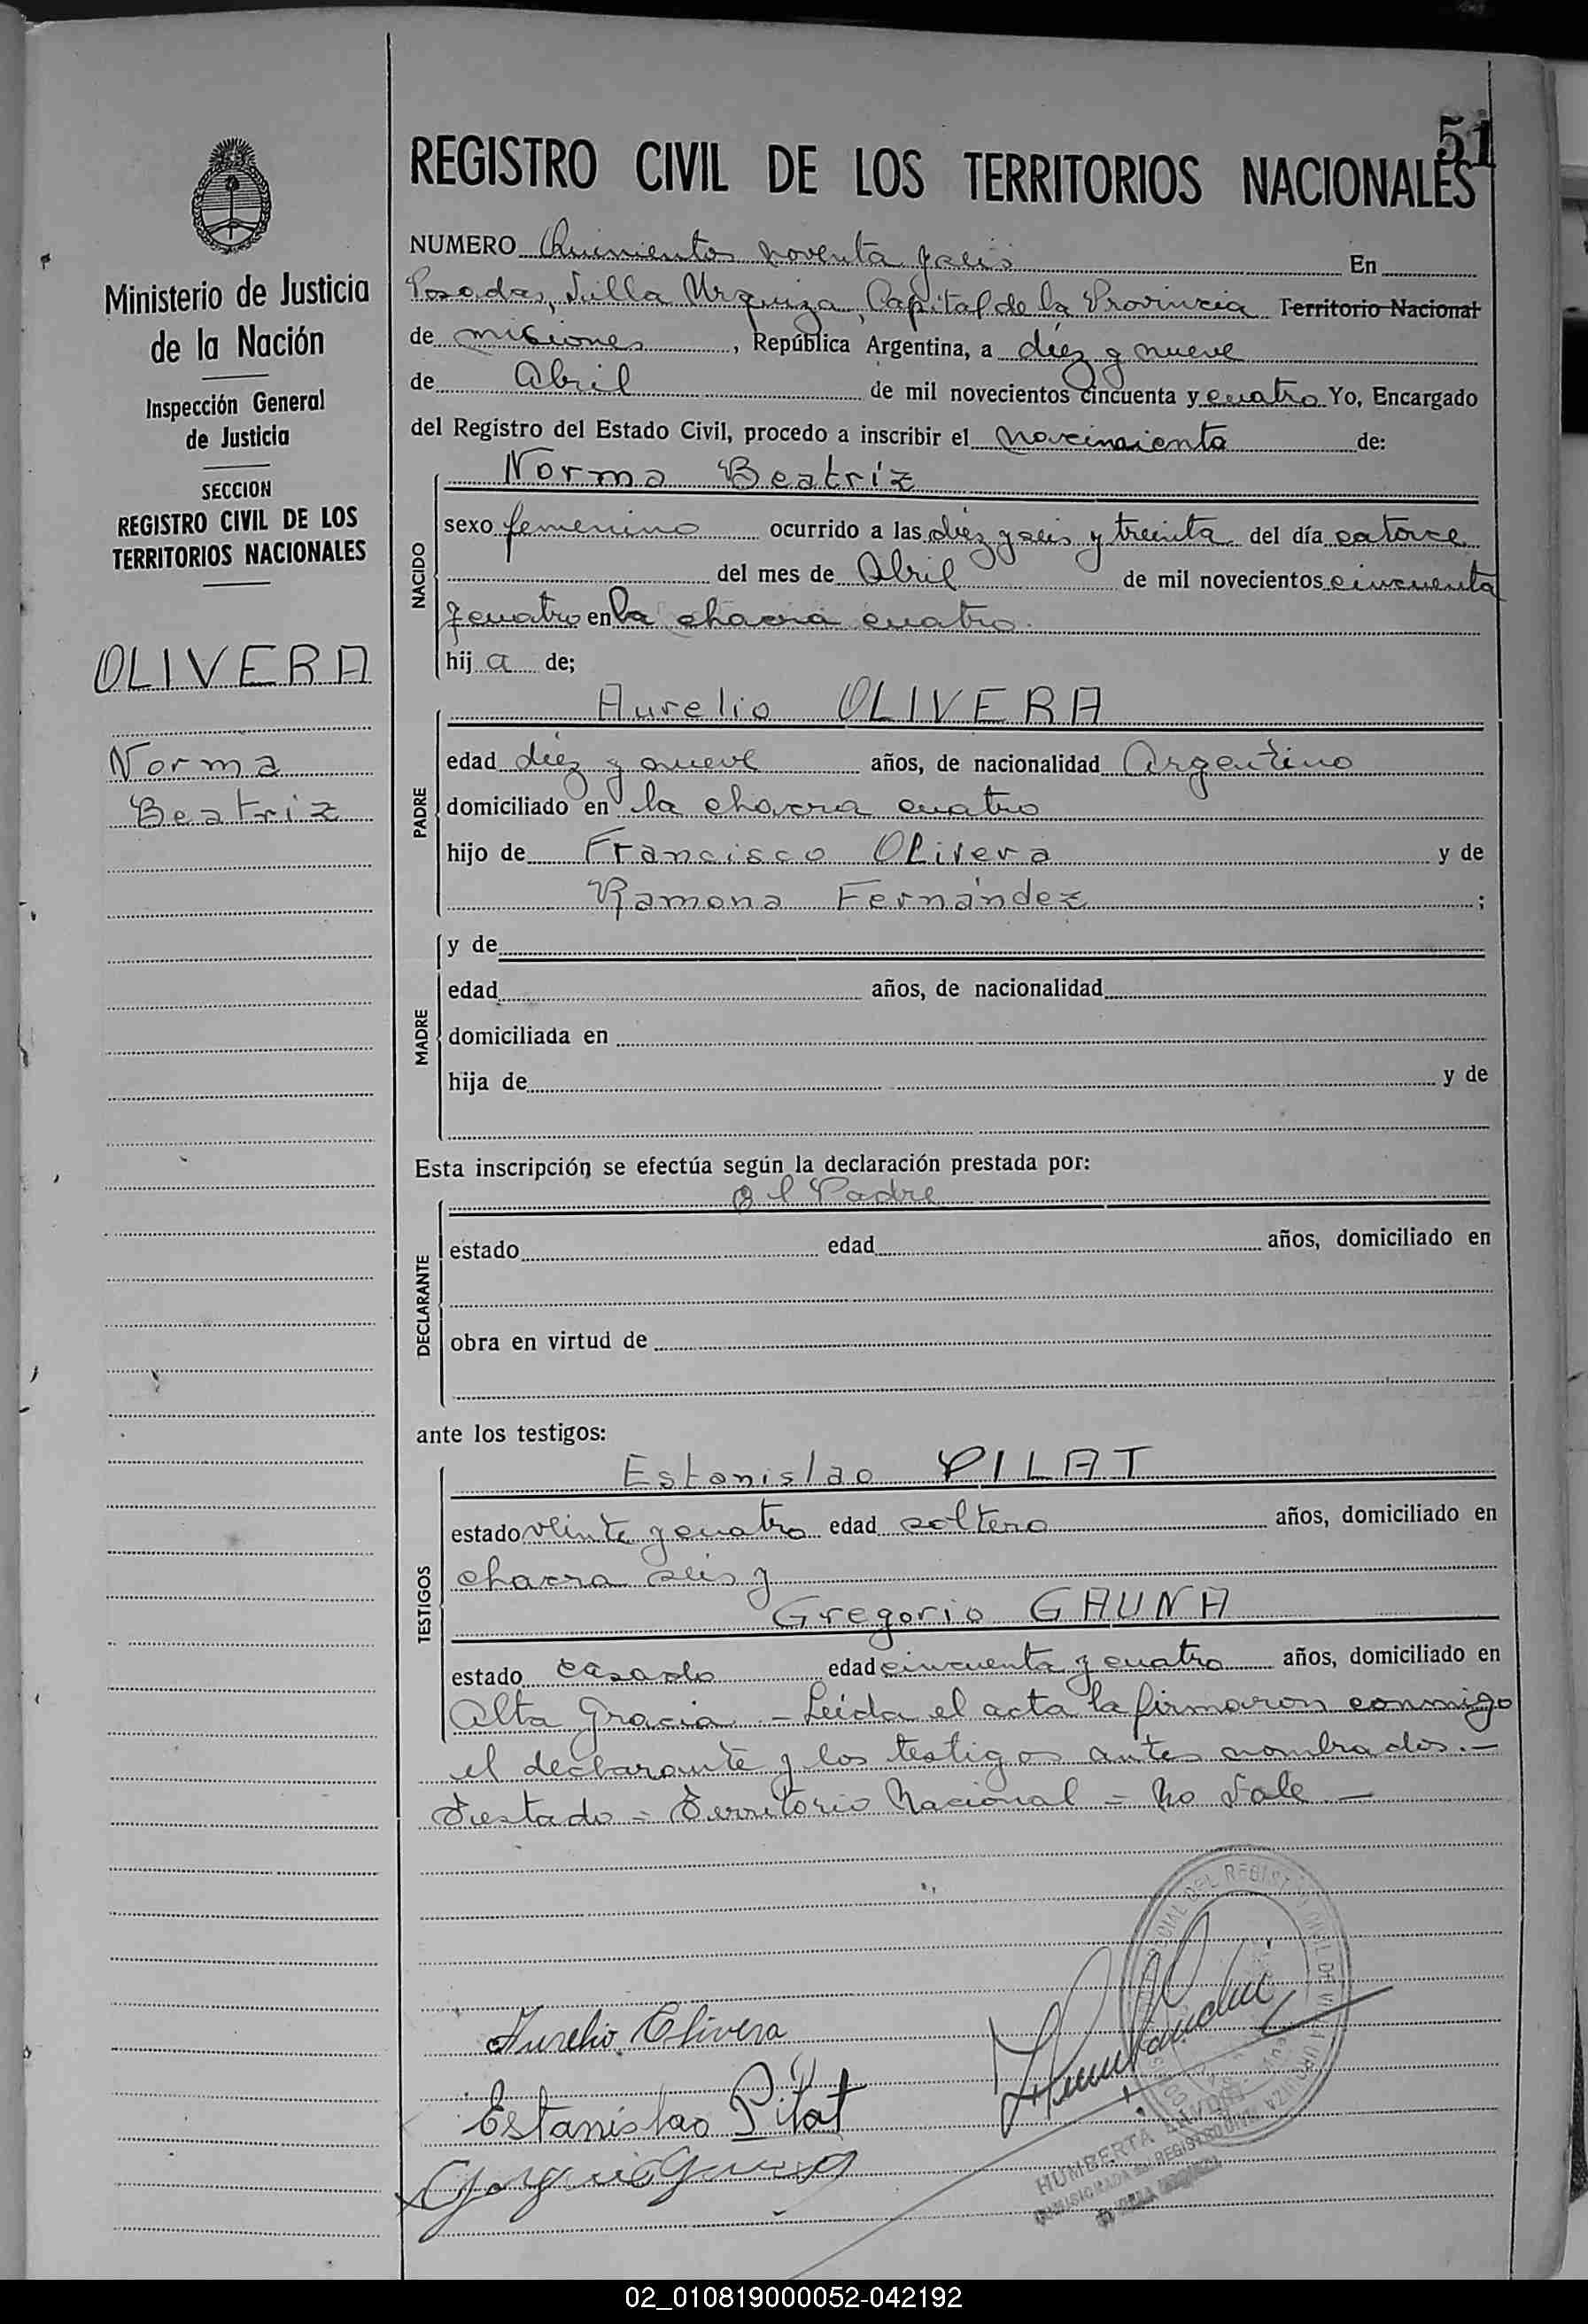 51
REGISTRO CIVIL DE LOS TERRITORIOS NACIONALES
Ministerio de Justicia
de la Nación
Inspección General
de Justicia
SECCION
REGISTRO CIVIL DE LOS
TERRITORIOS NACIONALES
OLIVERA
Norma
Beatriz
NUMERO Quinientos noventa y seis En
Posadas, Villa Urquiza, Capital de la Provincia Territorio Nacional
de misiones, República Argentina, a diez y nueve
de Abril de mil novecientos cincuenta y cuatro Yo, Encargado
del Registro del Estado Civil, procedo a inscribir el nacimiento de:
NACIDO
Norma Beatriz
sexo femenino ocurrido a las diez y seis y treinta del día catorce
del mes de Abril de mil novecientos cincuenta
y cuatro en la chacra cuatro.
hij a de;
PADRE
Aurelio OLIVERA
edad diez y nueve años, de nacionalidad Argentino
domiciliado en la chacra cuatro
hijo de Francisco Olivera y de
Ramona Fernández ;
MADRE
y de
edad años, de nacionalidad
domiciliada en
hija de y de
Esta inscripción se efectúa según la declaración prestada por:
DECLARANTE
El Padre
estado edad años, domiciliado en
obra en virtud de
ante los testigos:
TESTIGOS
Estanislao PILAT
estado veinte y cuatro edad soltero años, domiciliado en
chacra seis y
Gregorio GAUNA
estado casado edad cincuenta y cuatro años, domiciliado en
Alta Gracia - Leída el acta la firmaron conmigo
el declarante y los testigos antes nombrados.-
Testado = Territorio Nacional = No Vale -
Aurelio Olivera
Estanislao Pilat
DEL REGISTRO CIVIL DE VILLA URQUIZA
HUMBERTA
REGISTRO CIVIL
02_010819000052-042192